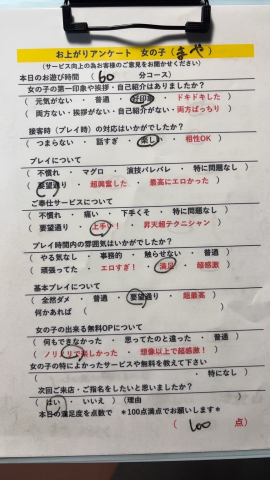 お上がりアンケート 女の子（まや）
（サービス向上の為お客様のご意見をお聞かせください）
本日のお遊び時間（60分コース）
女の子の第一印象や挨拶・自己紹介はありましたか？
（元気がない・普通・好印象・ドキドキした）
（両方ない・挨拶がない・自己紹介がない・両方ばっちり）
接客時（プレイ時）の対応はいかがでしたか？
（つまらない・話すぎ・楽しい・相性OK）
プレイについて
（不慣れ・マグロ・演技バレバレ・特に問題なし）
（要望通り・超興奮した・最高にエロかった）
ご奉仕サービスについて
（不慣れ・痛い・下手くそ・特に問題なし）
（上手い！・昇天超テクニシャン）
プレイ時間内の雰囲気はいかがでしたか？
（やる気なし・事務的・触らせない・普通）
（頑張ってた・エロすぎ！・満足・超感激）
基本プレイについて
（全然ダメ・普通・要望通り・超最高）
何かあれば（
女の子の出来る無料OPについて
（何もできなかった・思ってたのと違った・普通）
（ノリノリで楽しかった・想像以上で超感激！）
女の子の特によかったサービスや無料を教えて下さい
（・特になし）
次回ご来店・ご指名をしたいと思いましたか？
（はい・いいえ）（理由
本日の満足度を点数で *100点満点でお願いします*
（100点）